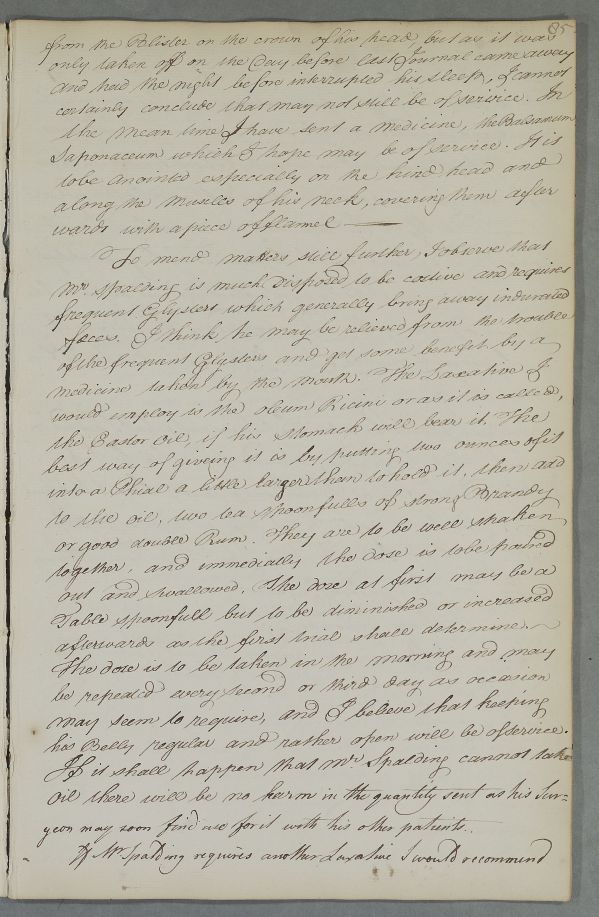 85
from the Blister on the crown of his head but as it was
only taken off on the Day before last Journal came away
and had the night before interrupted his sleep, I cannot
certainly conclude that may not still be of service. In
the mean time I have sent a medicine, the Balsamum
Saponaceum which I hope may be of service. It is
tobe anointed especially on the hind head and
along the Muscles of his neck, covering them after
wards with a piece of flannel —
To mend matters still further, I observe that
Mr. Spalding is much disposed to be costive and requires
frequent Glysters which generally bring away indurated
faeces. I think he may be relieved from the trouble
of the frequent Glysters and get some benefit by a
medicine taken by the mouth. The Laxative I
would employ is the oleum Ricini or as it is called,
the Castor Oil, if his Stomach will bear it. The
best way of giveing it is by putting two ounces of it
into a Phial a little larger than to hold it, then add
to the oil, two tea spoonfulls of strong Brandy
or good double Rum. They are to be well shaken
together, and immediatly the dose is tobe poured
out and swallowed. The dose at first may be a
Table spoonfull but to be diminished or increased
afterwards as the first trial shall determine. ~
The dose is to be taken in the morning and may
be repeated every second or third day as occasion
may seem to require, and I believe that keeping
his Belly regular and rather open will be of service.
If it shall happen that Mr. Spalding cannot take
Oil there will be no harm in the quantity sent as his Sur=
geon may soon find use for it with his other patients..
If Mr Spalding requires another Laxative I would recommend